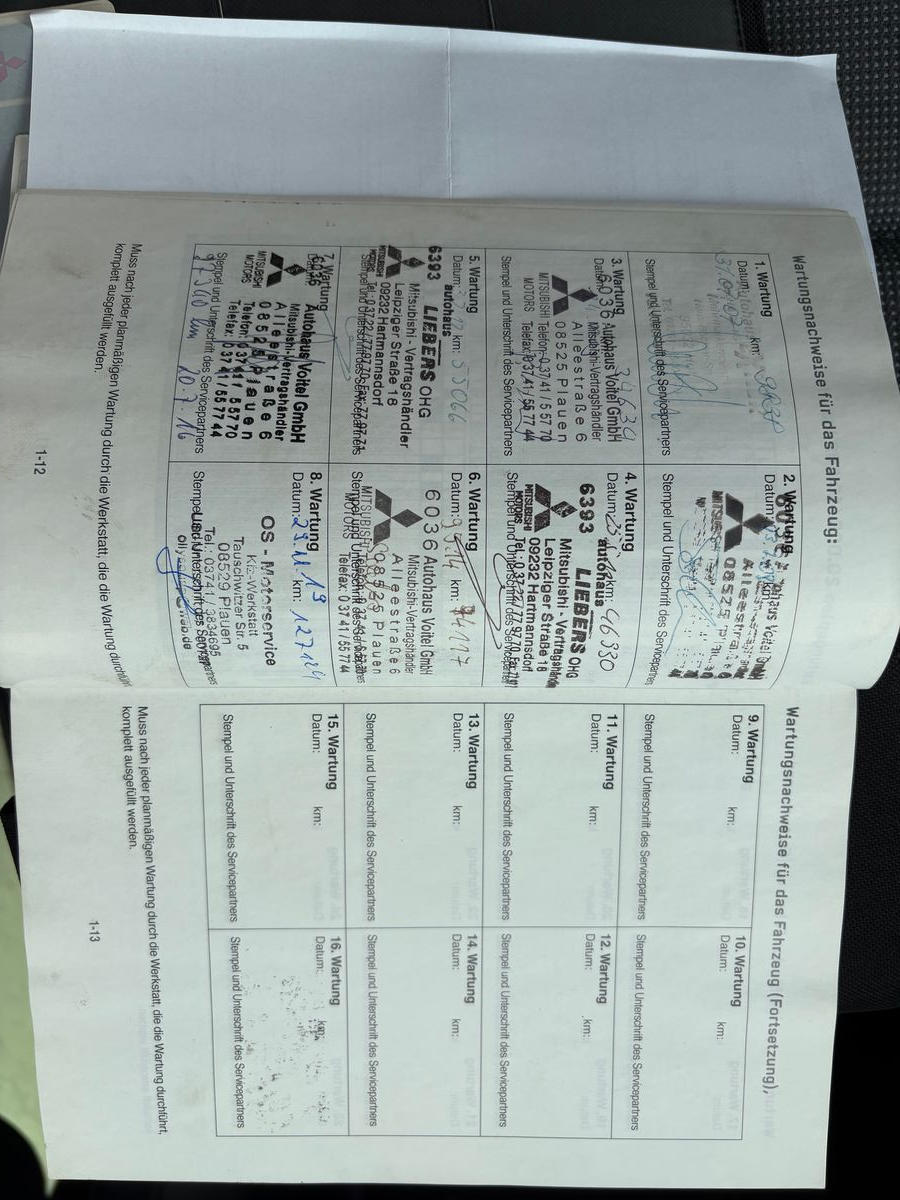 Wartungsnachweise für das Fahrzeug:
1. Wartung
Datum: km:
Stempel und Unterschrift des Servicepartners
2. Wartung
Datum
Alleestraße
08525
Stempel und Unterschrift des Servicepartners
3. Wartung
Datum: 34630
6036 Autohaus Voitel GmbH
Mitsubishi-Vertragshändler
Alleestraße 6
08525 Plauen
MITSUBISHI Telefon 0 37 41 / 5 57 70
MOTORS Telefax 0 37 41 / 55 77 44
Stempel und Unterschrift des Servicepartners
4. Wartung
Datum: km: 46930
autohaus
6393 LIEBERS OHG
Mitsubishi - Vertragshändler
Leipziger Straße 18
09232 Hartmannsdorf
MITSUBISHI
MOTORS
Stempel und Unterschrift des Servicepartners
5. Wartung
Datum: km: 55066
autohaus
6393 LIEBERS OHG
Mitsubishi - Vertragshändler
Leipziger Straße 18
09232 Hartmannsdorf
MITSUBISHI
MOTORS
Stempel und Unterschrift des Servicepartners
6. Wartung
Datum: km:
6036 Autohaus Voitel GmbH
Mitsubishi-Vertragshändler
Alleestraße 6
08525 Plauen
MITSUBISHI
MOTORS Telefax: 0 37 41 / 55 77 44
Stempel und Unterschrift des Servicepartners
7. Wartung
6036 Autohaus Voitel GmbH
Mitsubishi-Vertragshändler
Alleestraße 6
08525 Plauen
MITSUBISHI Telefon: 0 37 41 / 5 57 70
MOTORS Telefax: 0 37 41 / 55 77 44
Stempel und Unterschrift des Servicepartners
km 20.7.16
8. Wartung
Datum: 29.11.19 km: 127124
OS - Motorservice
Kfz-Werkstatt
Tauschwitzer Str. 5
08529 Plauen
Tel.: 03741 / 3834695
Stempel und Unterschrift des Servicepartners
Muss nach jeder planmäßigen Wartung durch die Werkstatt, die die Wartung durchführt,
komplett ausgefüllt werden.
1-12
Wartungsnachweise für das Fahrzeug (Fortsetzung),
9. Wartung
Datum: km:
Stempel und Unterschrift des Servicepartners
10. Wartung
Datum: km:
Stempel und Unterschrift des Servicepartners
11. Wartung
Datum: km:
Stempel und Unterschrift des Servicepartners
12. Wartung
Datum: km:
Stempel und Unterschrift des Servicepartners
13. Wartung
Datum: km:
Stempel und Unterschrift des Servicepartners
14. Wartung
Datum: km:
Stempel und Unterschrift des Servicepartners
15. Wartung
Datum: km:
Stempel und Unterschrift des Servicepartners
16. Wartung
Datum: km:
Stempel und Unterschrift des Servicepartners
Muss nach jeder planmäßigen Wartung durch die Werkstatt, die die Wartung durchführt,
komplett ausgefüllt werden.
1-13